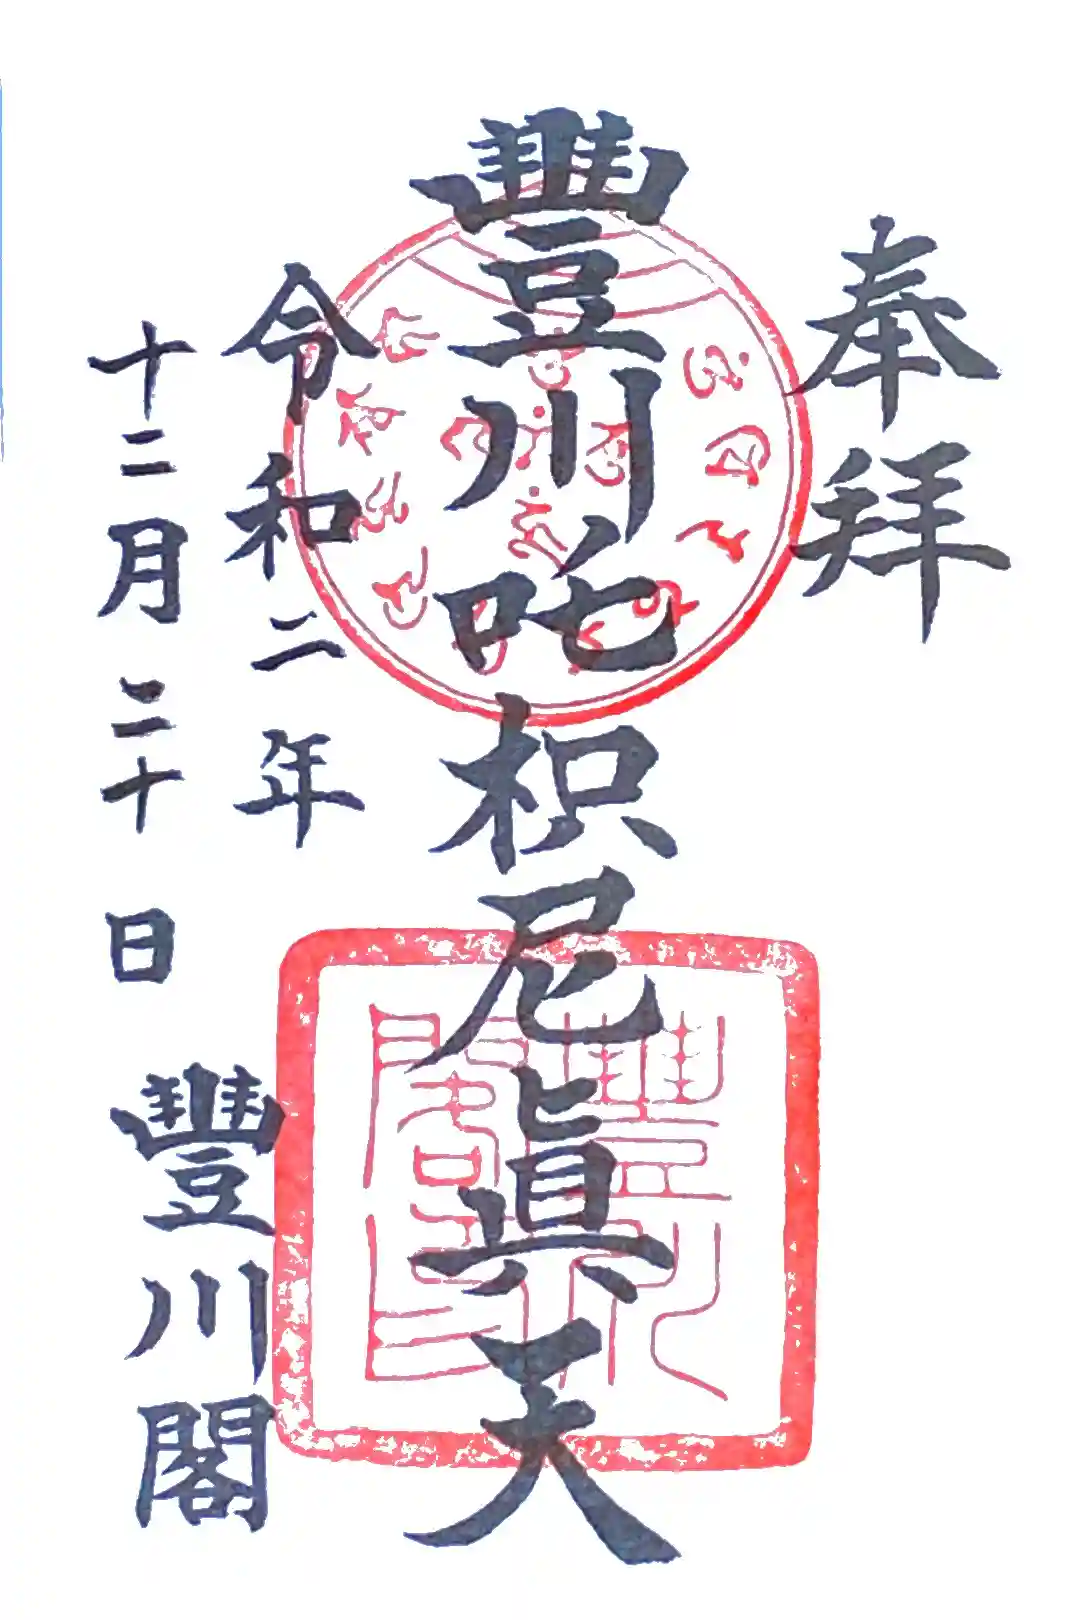 奉拝
豐川吒枳尼眞天
令和二年
十二月二十日
豐川閣